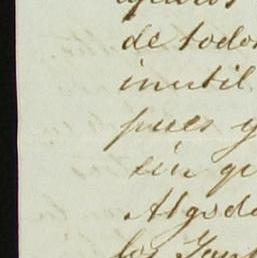 de todos
inutil
pues y
sin qu
Algodo
los